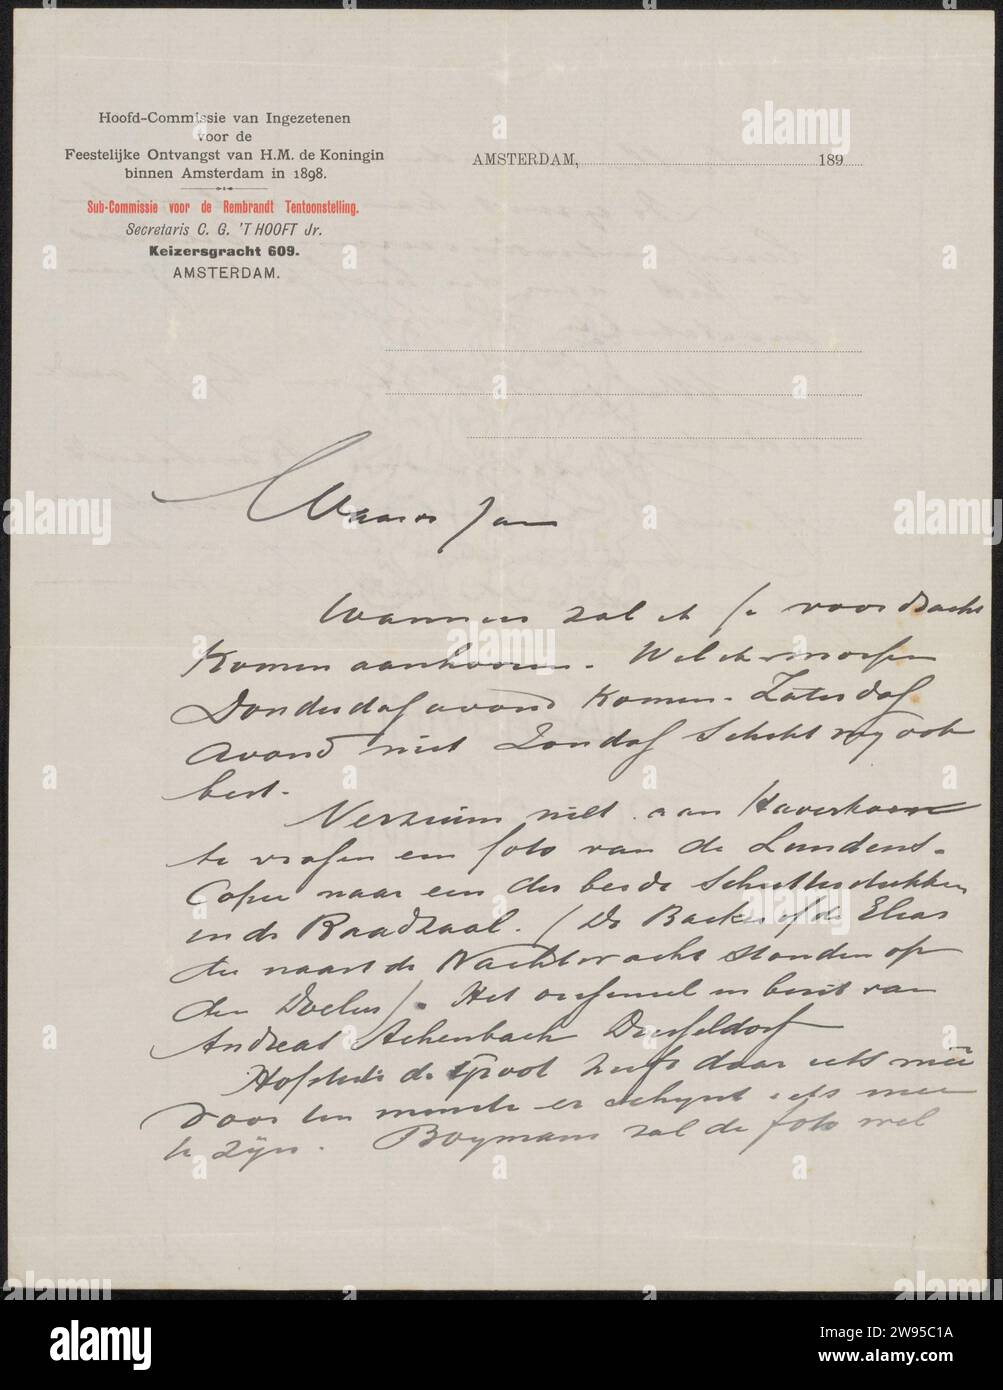 Hoofd-Commissie van Ingezetenen
voor de
Feestelijke Ontvangst van H.M. de Koningin
binnen Amsterdam in 1898.
Sub-Commissie voor de Rembrandt Tentoonstelling.
Secretaris C. G. 'T HOOFT Jr.
Keizersgracht 609.
AMSTERDAM.
AMSTERDAM, 189
Waarde Jan
Wanneer zal ik je voordracht
komen aanhooren. Wil ik morgen
Donderdag avond komen. Zaterdag
avond niet Zondag schikt mij ook
best.
Verzuim niet aan Haverkorn
te vragen een foto van de Lundens-
Copie naar een der beide schutterstukken
in de Raadzaal. (De Backer of de Elias
die naast de Nachtwacht stonden op
den Doelen). Het origineel in bezit van
Andreas Achenbach Dusseldorf
Hofstede de Groot heeft daar iets mee
voor ten minste er schijnt iets mee
te zijn. Boymans zal de foto wel
alamy
Image ID: 2W95C1A
www.alamy.com